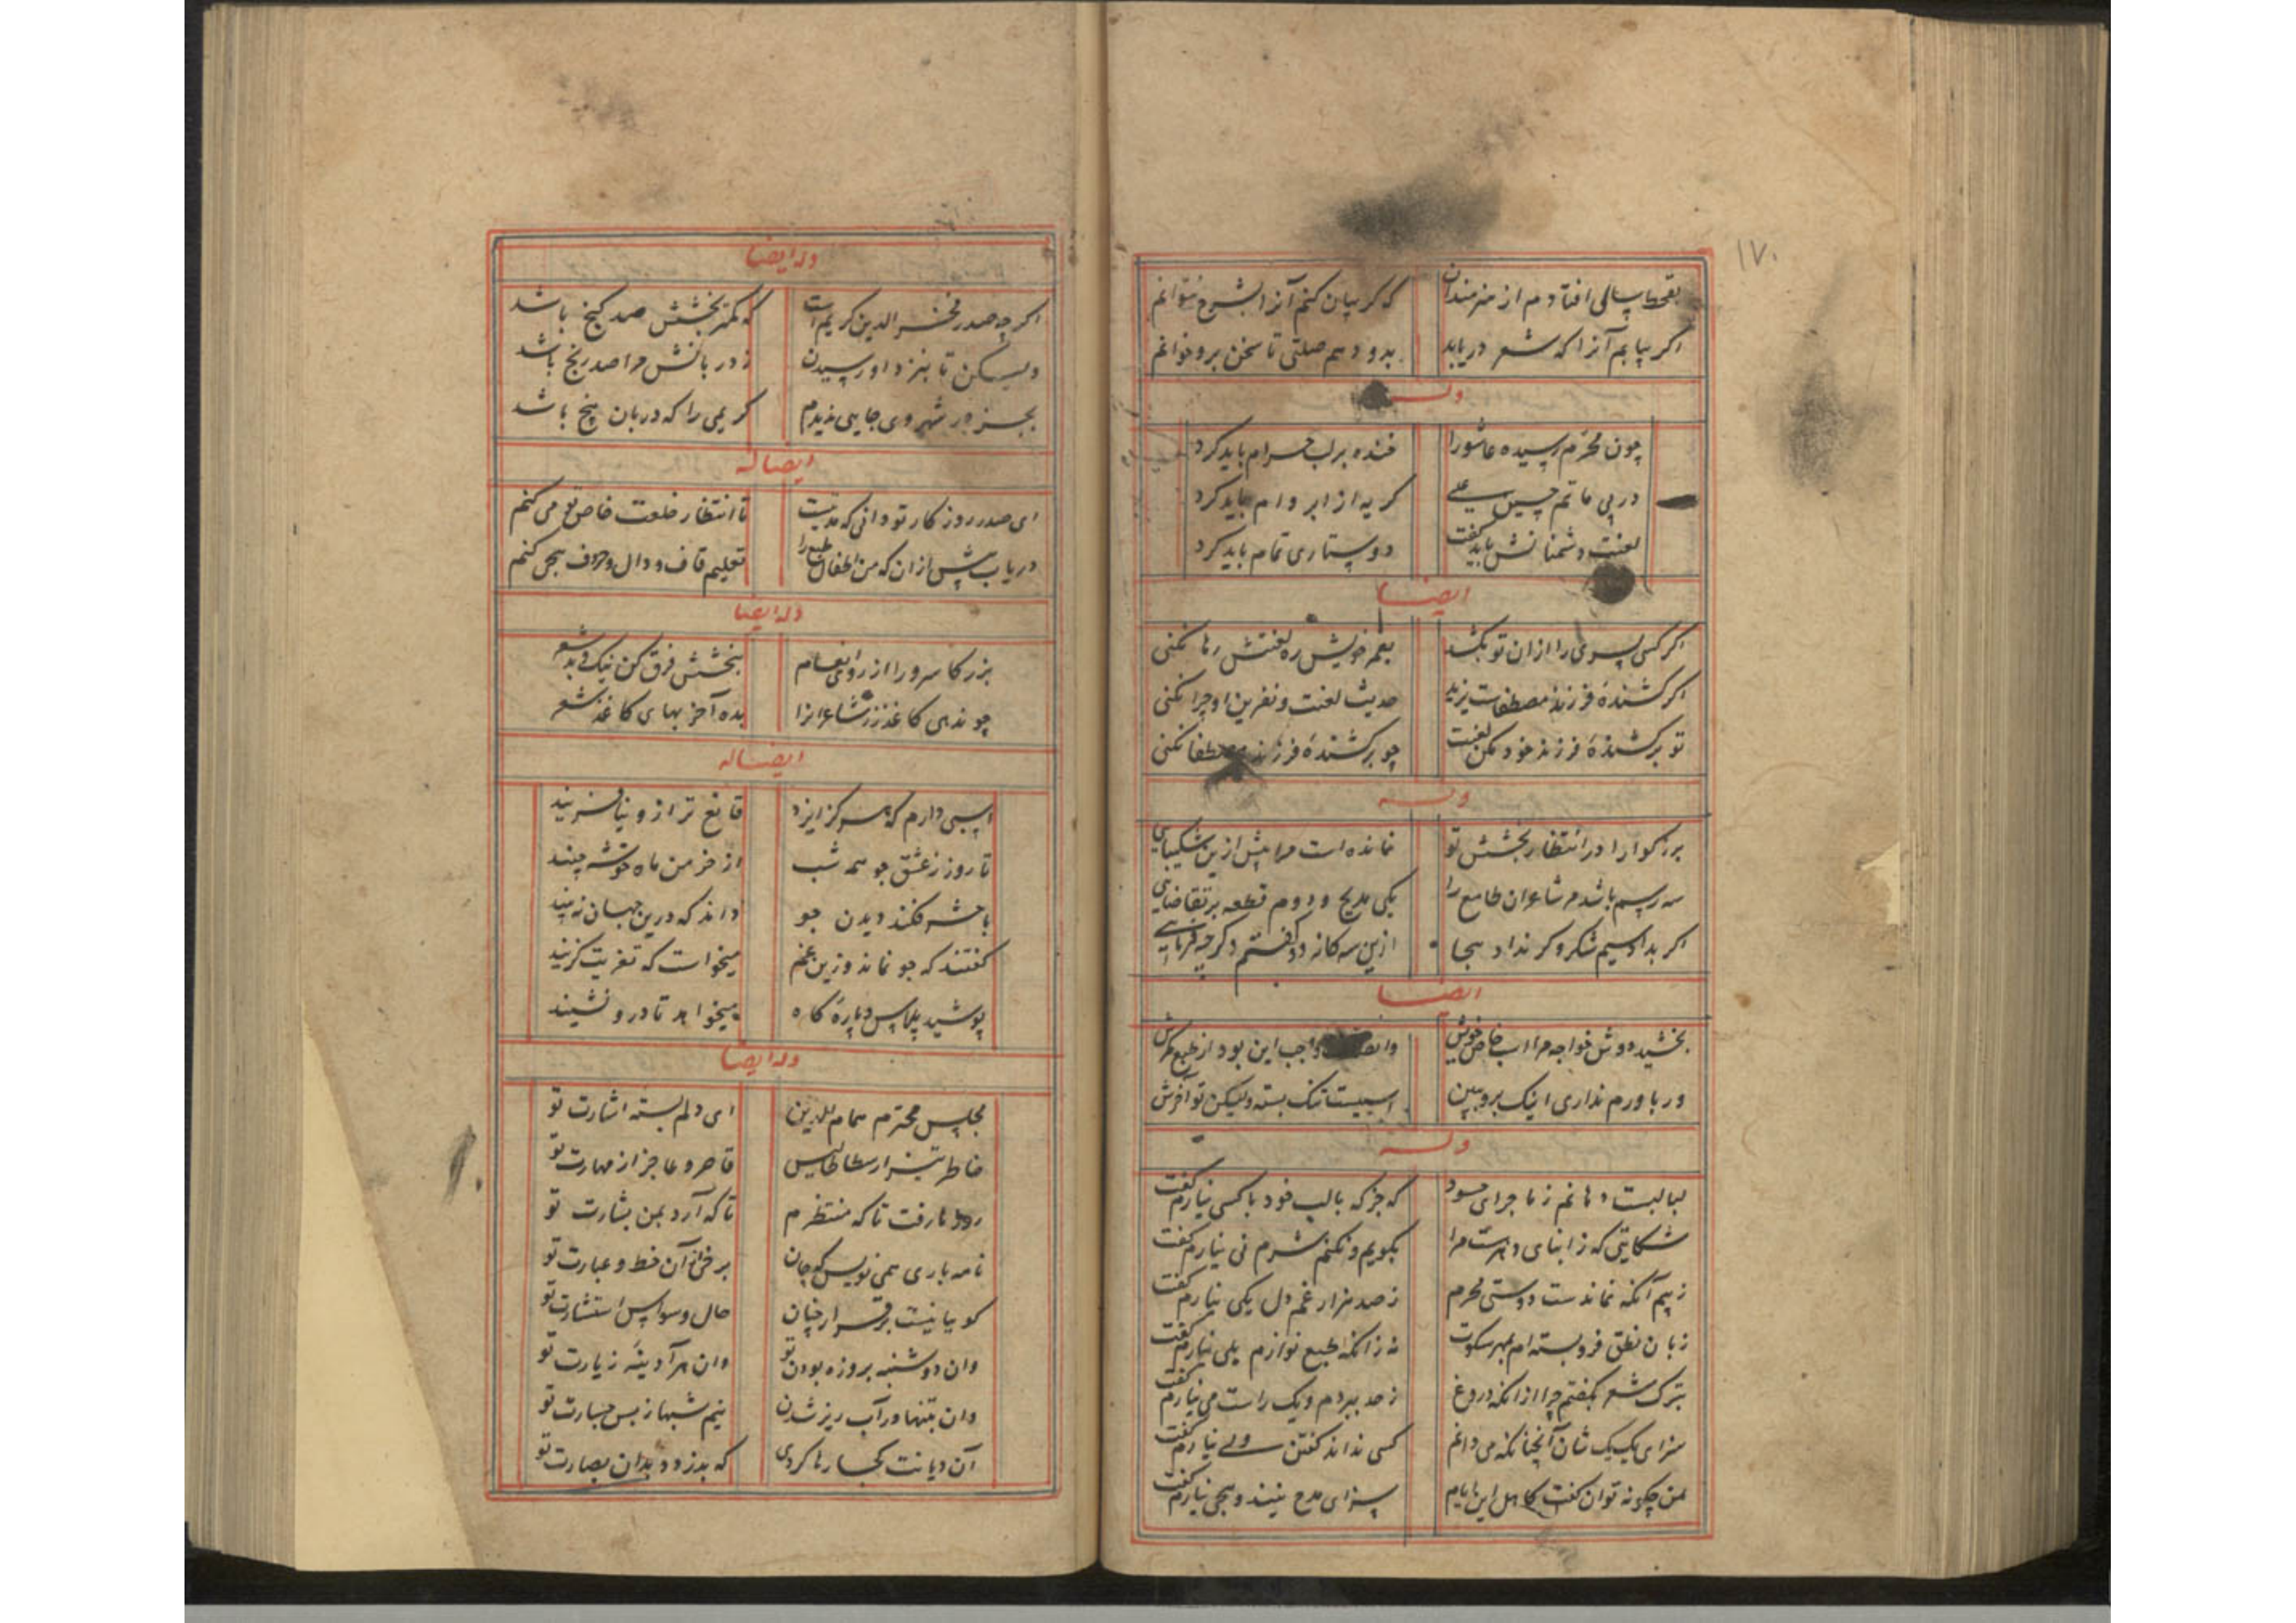 ۱۷۰
بقحط سالی افتاده‌م از هنرمندان که گر بیان کنم آنرا بشرح نتوانم
اگر بیابم آنرا که شعر دریابد بدو دهم صلتی تا سخن برو خوانم
وله
چون محرم رسید و عاشورا خنده بر لب حرام باید کرد
در پی ماتم حسین علی گریه از ابر وام باید کرد
لعنت دشمنانش باید گفت دوستاری تمام باید کرد
ایضا
اگر کسی پسری را از ان تو بکشد بعمر خویش ره لعنتش رها نکنی
اگر کشنده فرزند مصطفاست یزید حدیث لعنت و نفرین او چرا نکنی
تو بر کشنده فرزند خود مکن لعنت چو بر کشنده فرزند مصطفا نکنی
وله
بزرگوارا در انتظار بخشش تو نمانده است مرا بیش ازین شکیبایی
سه رسم باشد مر شاعران طامع را یکی مدیح و دوم قطعه تقاضایی
اگر بداد سیم شکر و گر نداد هجا ازین سه گانه دو گفتم دگر چه فرمایی
ایضا
بخشید دوش خواجه مرا اسب خاص خویش واجب این بود از طبع مکرمش
ور باورم نداری اینک برو ببین اسبیست تنگ بسته ولیکن تو آخرش
وله
لبالبست دهانم ز ماجرای حسود که جز که با لب خود با کسی نیارم گفت
شکایتی که ز ابنای دهرست مرا بگویم و نکنم شرم نی نیارم گفت
ز بیم آنکه نماندست دوستی محرم ز صد هزار غم دل یکی نیارم گفت
زبان نطق فرو بسته‌ام بمهر سکوت نه زانکه طبع نوازم بلی نیارم گفت
بترک شعر بگفتم چرا از انکه دروغ ز حد ببردم و یک راست می نیارم گفت
سزای یک یک شان آنچنانکه می دانم کسی نداند گفتن ولی نیارم گفت
بمن چگونه توان گفت کاهل این ایام سزای مدح نیند و هجی نیارم گفت
وله ایضا
اگرچه صدر فخر الدین کریم است که کمتر بخشش صد گنج باشد
ولیکن تا بنزد او رسیدن ز دربانش مرا صد رنج باشد
بجز در شهر وی جایی ندیدم کریمی را که دربان پنج باشد
ایضا له
ای صدر روزگار تو دانی که مدتیست تا انتظار خلعت خاص تو می کنم
دریاب پیش از ان که من اطفال طبع را تعلیم قاف و دال و حروف هجی کنم
وله ایضا
بزرگا سرورا از روی انعام ببخشش فرق کن نیک و بد شعر
چو ندهی کاغذ زر شاعرانرا بده آخر بهای کاغذ شعر
ایضا له
اسبی دارم که هرگز ایزد قانع تر ازو نیافریند
تا روز ز عشق جو همه شب از خرمن ماه خوشه چیند
باشد کند دیدن جو داند که درین جهان نبیند
گفتند که جو نماند وزین غم میخواست که تعزیت گزیند
پوشید پلاس و پاره کاه میخواهد تا درو نشیند
وله ایضا
مجلس محترم همام الدین ای دلم بسته اشارت تو
خاطر تیز ارسطاطالیس قاصر و عاجز از مهارت تو
روزها رفت تا که منتظرم تا که آرد بمن بشارت تو
نامه باری همی نویس که جان برخی آن خط و عبارت تو
گوییا نیست برقرار چنان حال وسواس و استشارت تو
وان دوشنبه بروزه بودن تو وان هر آدینه زیارت تو
وان بتنها در آب ریز شدن نیم شبها ز بس جسارت تو
آن دیانت کجا رها کردی که بدزدد بدان بصارت تو